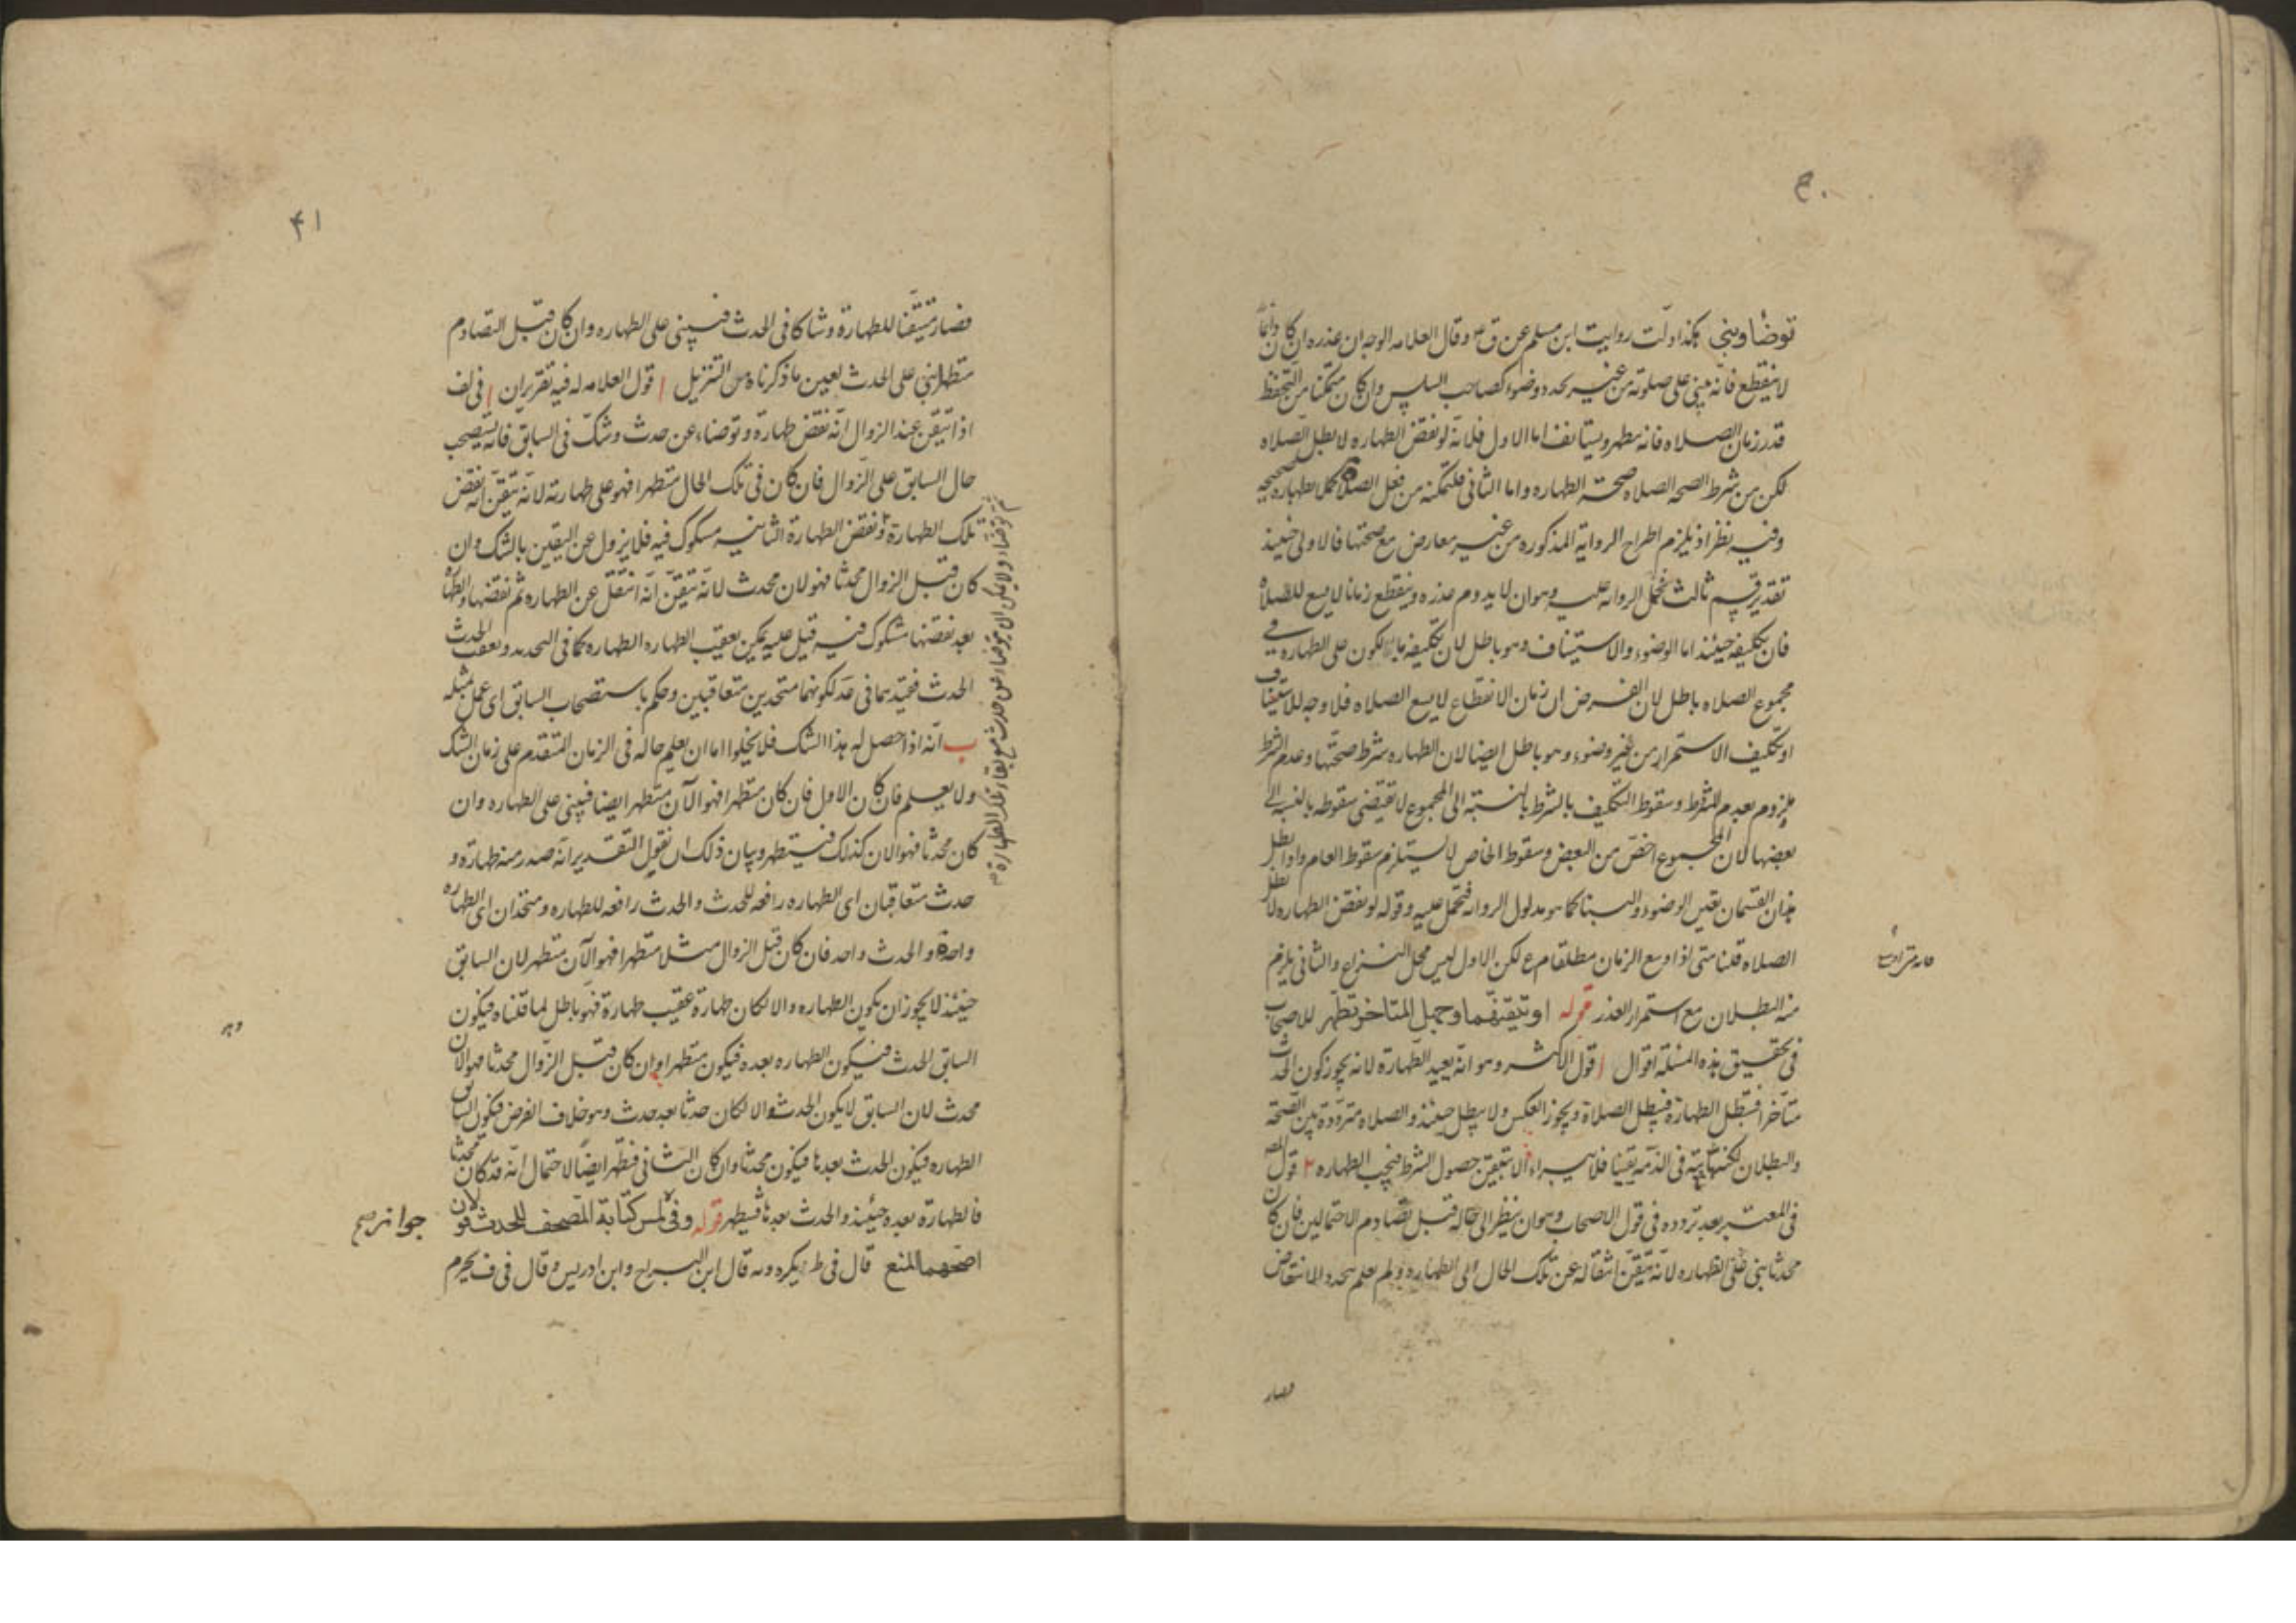 توضأ وبنى هكذا دلت روايت ابن مسلم عن ق ع وقال العلامه الوجه ان عذره ان كان دائما
لا ينقطع فانه يبنى على صلوته من غير تجدد وضوء كصاحب السلس وان كان متمكنا من التحفظ
قدر زمان الصلاه فانه يتطهر ويستانف اما الاول فلانه لو نقض الطهاره لابطل الصلاه
لكن من شرط الصحه الصلاه صحة الطهاره واما الثاني فلتمكنه من فعل الصلاة كملا بطهاره صحيحه
وفيه نظر اذ يلزم اطراح الرواية المذكوره من غير معارض مع صحتها فالاولى حينئذ
تقدير قسم ثالث تحمل الروايه عليه وهو ان لا يدوم عذره وينقطع زمانا لا يسع للصلاة
فان تكليفه حينئذ اما الوضوء والاستيناف وهو باطل لان تكليفه بالكون على الطهاره في
مجموع الصلاه باطل لان الفرض ان زمان الانقطاع لا يسع الصلاه فلا وجه للاستيناف
او تكليف الاستمرار من غير وضوء وهو باطل ايضا لان الطهاره شرط صحتها وعدم الشرط
ملزوم بعدم المشروط وسقوط التكليف بالشرط بالنسبة الى المجموع لا يقتضى سقوطه بالنسبه الى
بعضها لان المجموع اخص من البعض وسقوط الخاص لا يستلزم سقوط العام واذا بطل
هذان القسمان تعين الوضوء والبنا كما هو مدلول الروايه فتحمل عليه وقوله لو نقض الطهاره لا بطل
الصلاه قلنا متى اذا وسع الزمان مطلقا م ع لكن الاول ليس محل النزاع والثاني يلزم
منه البطلان مع استمرار العذر قوله او تيقنهما وجهل المتاخر تطهر للاصحاب
في تحقيق هذه المسئلة اقوال ا قول الاكثر وهو انه يعيد الطهارة لانه يجوز كون الحدث
متاخرا فتبطل الطهارة فيبطل الصلاة ويجوز العكس ولا يبطل حينئذ والصلاه مترددة بين الصحة
والبطلان لكنها ثابتة في الذمه يقينا فلا يبراء الا بتيقن حصول الشرط فيجب الطهاره ٢ قول المص
في المعتبر بعد تردده في قول الاصحاب وهو ان ينظر الى حاله قبل تصادم الاحتمالين فان كان
محدثا بنى على الطهاره لانه تيقن انتقاله عن تلك الحال الى الطهاره ولم يعلم تجدد الانتقاض
فصار
۴۱
فصار متيقنا للطهارة وشاكا في الحدث فيبنى على الطهاره وان كان قبل التصادم
متطهرا بنى على الحدث بعين ما ذكرناه من التنزيل ا قول العلامه له فيه تقريران ا في لف
اذا تيقن عند الزوال انه نقض طهارة وتوضاء عن حدث وشك في السابق فانه يستصحب
حال السابق على الزوال فان كان في تلك الحال متطهرا فهو على طهارته لانه تيقن انه نقض
تلك الطهارة
ثم توضاء ولا يمكن ان يتوضا عن حدث مع بقاء تلك الطهارة
ونقض الطهارة الثانيه مشكوك فيه فلا يزول عن اليقين بالشك وان
كان قبل الزوال محدثا فهو لان محدث لانه تيقن انه انتقل عن الطهاره ثم نقضها والطهارة
بعد نقضها مشكوك فيه قيل عليه يمكن تعقيب الطهاره الطهاره كما في التجديد وتعقب الحدث
الحدث فقيدهما في عد لكونهما متحدين متعاقبين وحكم باستصحاب السابق اى عمل بمثله
ب انه اذا حصل له هذا الشك فلا يخلوا اما ان يعلم حاله في الزمان المتقدم على زمان الشك
ولا يعلم فان كان الاول فان كان متطهرا فهو الآن متطهر ايضا فيبنى على الطهاره وان
كان محدثا فهو الان كذلك فيتطهر وبيان ذلك ان نقول التقدير انه صدر منه طهارة و
حدث متعاقبان اى الطهاره رافعه للحدث والحدث رافعه للطهاره ومتحدان اى الطهاره
واحدة والحدث واحد فان كان قبل الزوال مثلا متطهرا فهو الآن متطهر لان السابق
حينئذ لا يجوز ان يكون الطهاره والا لكان طهارة عقيب طهارة فهو باطل لما قلناه فيكون
السابق الحدث فيكون الطهاره بعده فيكون متطهرا وان كان قبل الزوال محدثا فهو الان
محدث لان السابق لا يكون الحدث والا لكان حدثا بعد حدث وهو خلاف الفرض فيكون السابق
الطهاره فيكون الحدث بعدها فيكون محدثا وان كان الثاني فتطهر ايضا لاحتمال انه قد كان محدثا
فالطهارة بعده حينئذ والحدث بعدها فيتطهر قوله وفي لمس كتابة المصحف للحدث قولان
جوازه صح
اصحهما المنع قال في ط يكره وبه قال ابن البراج وابن ادريس وقال في ف يحرم